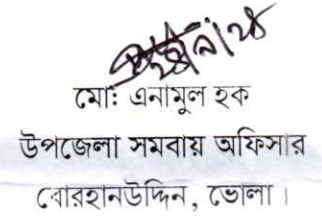 মোঃ এনামুল হক
উপজেলা সমবায় অফিসার
বোরহানউদ্দিন, ভোলা।